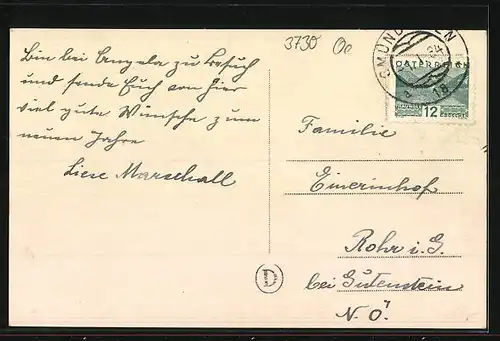 3730 Oe
GMUNDEN
ÖSTERREICH
12
Bin bei Angela zu Besuch
und sende Euch von hier
viel gute Wünsche zum
neuen Jahre
Liese Marschall
Familie
Einerinhof
Rohr i. G.
bei Gutenstein
N. Ö.